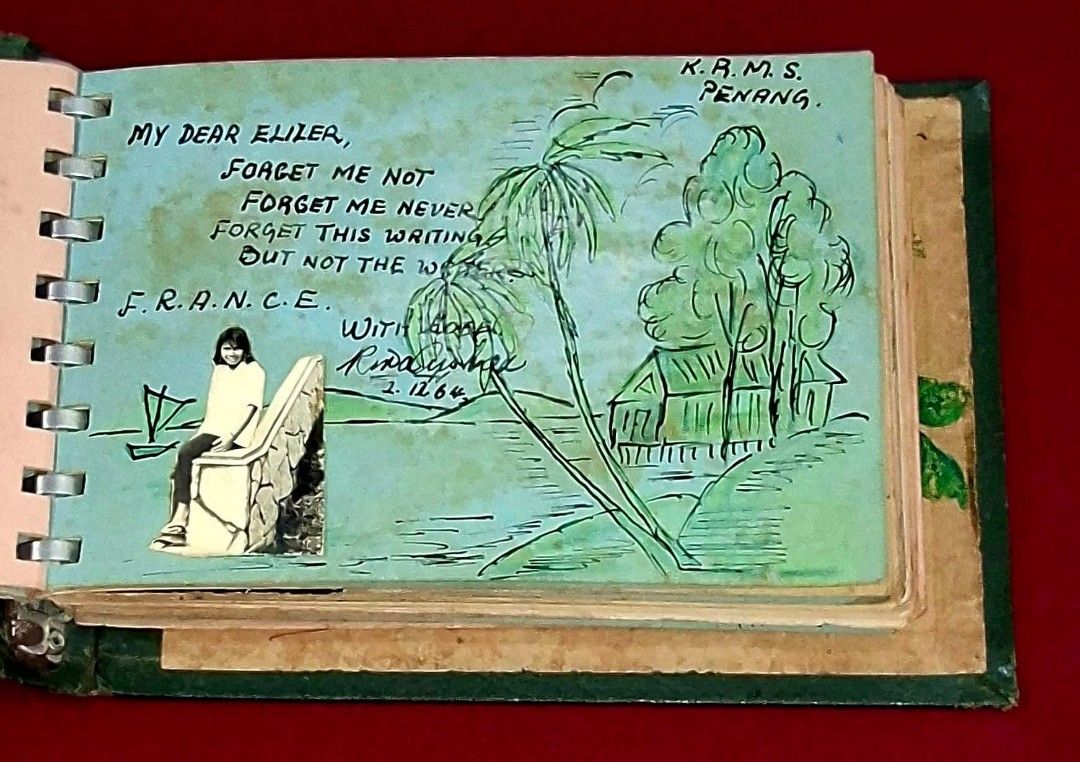 K.R.M.S.
PENANG.
MY DEAR ELIZER,
FORGET ME NOT
FORGET ME NEVER
FORGET THIS WRITING
BUT NOT THE WRITER.
F.R.A.N.C.E.
WITH
2.12.64.